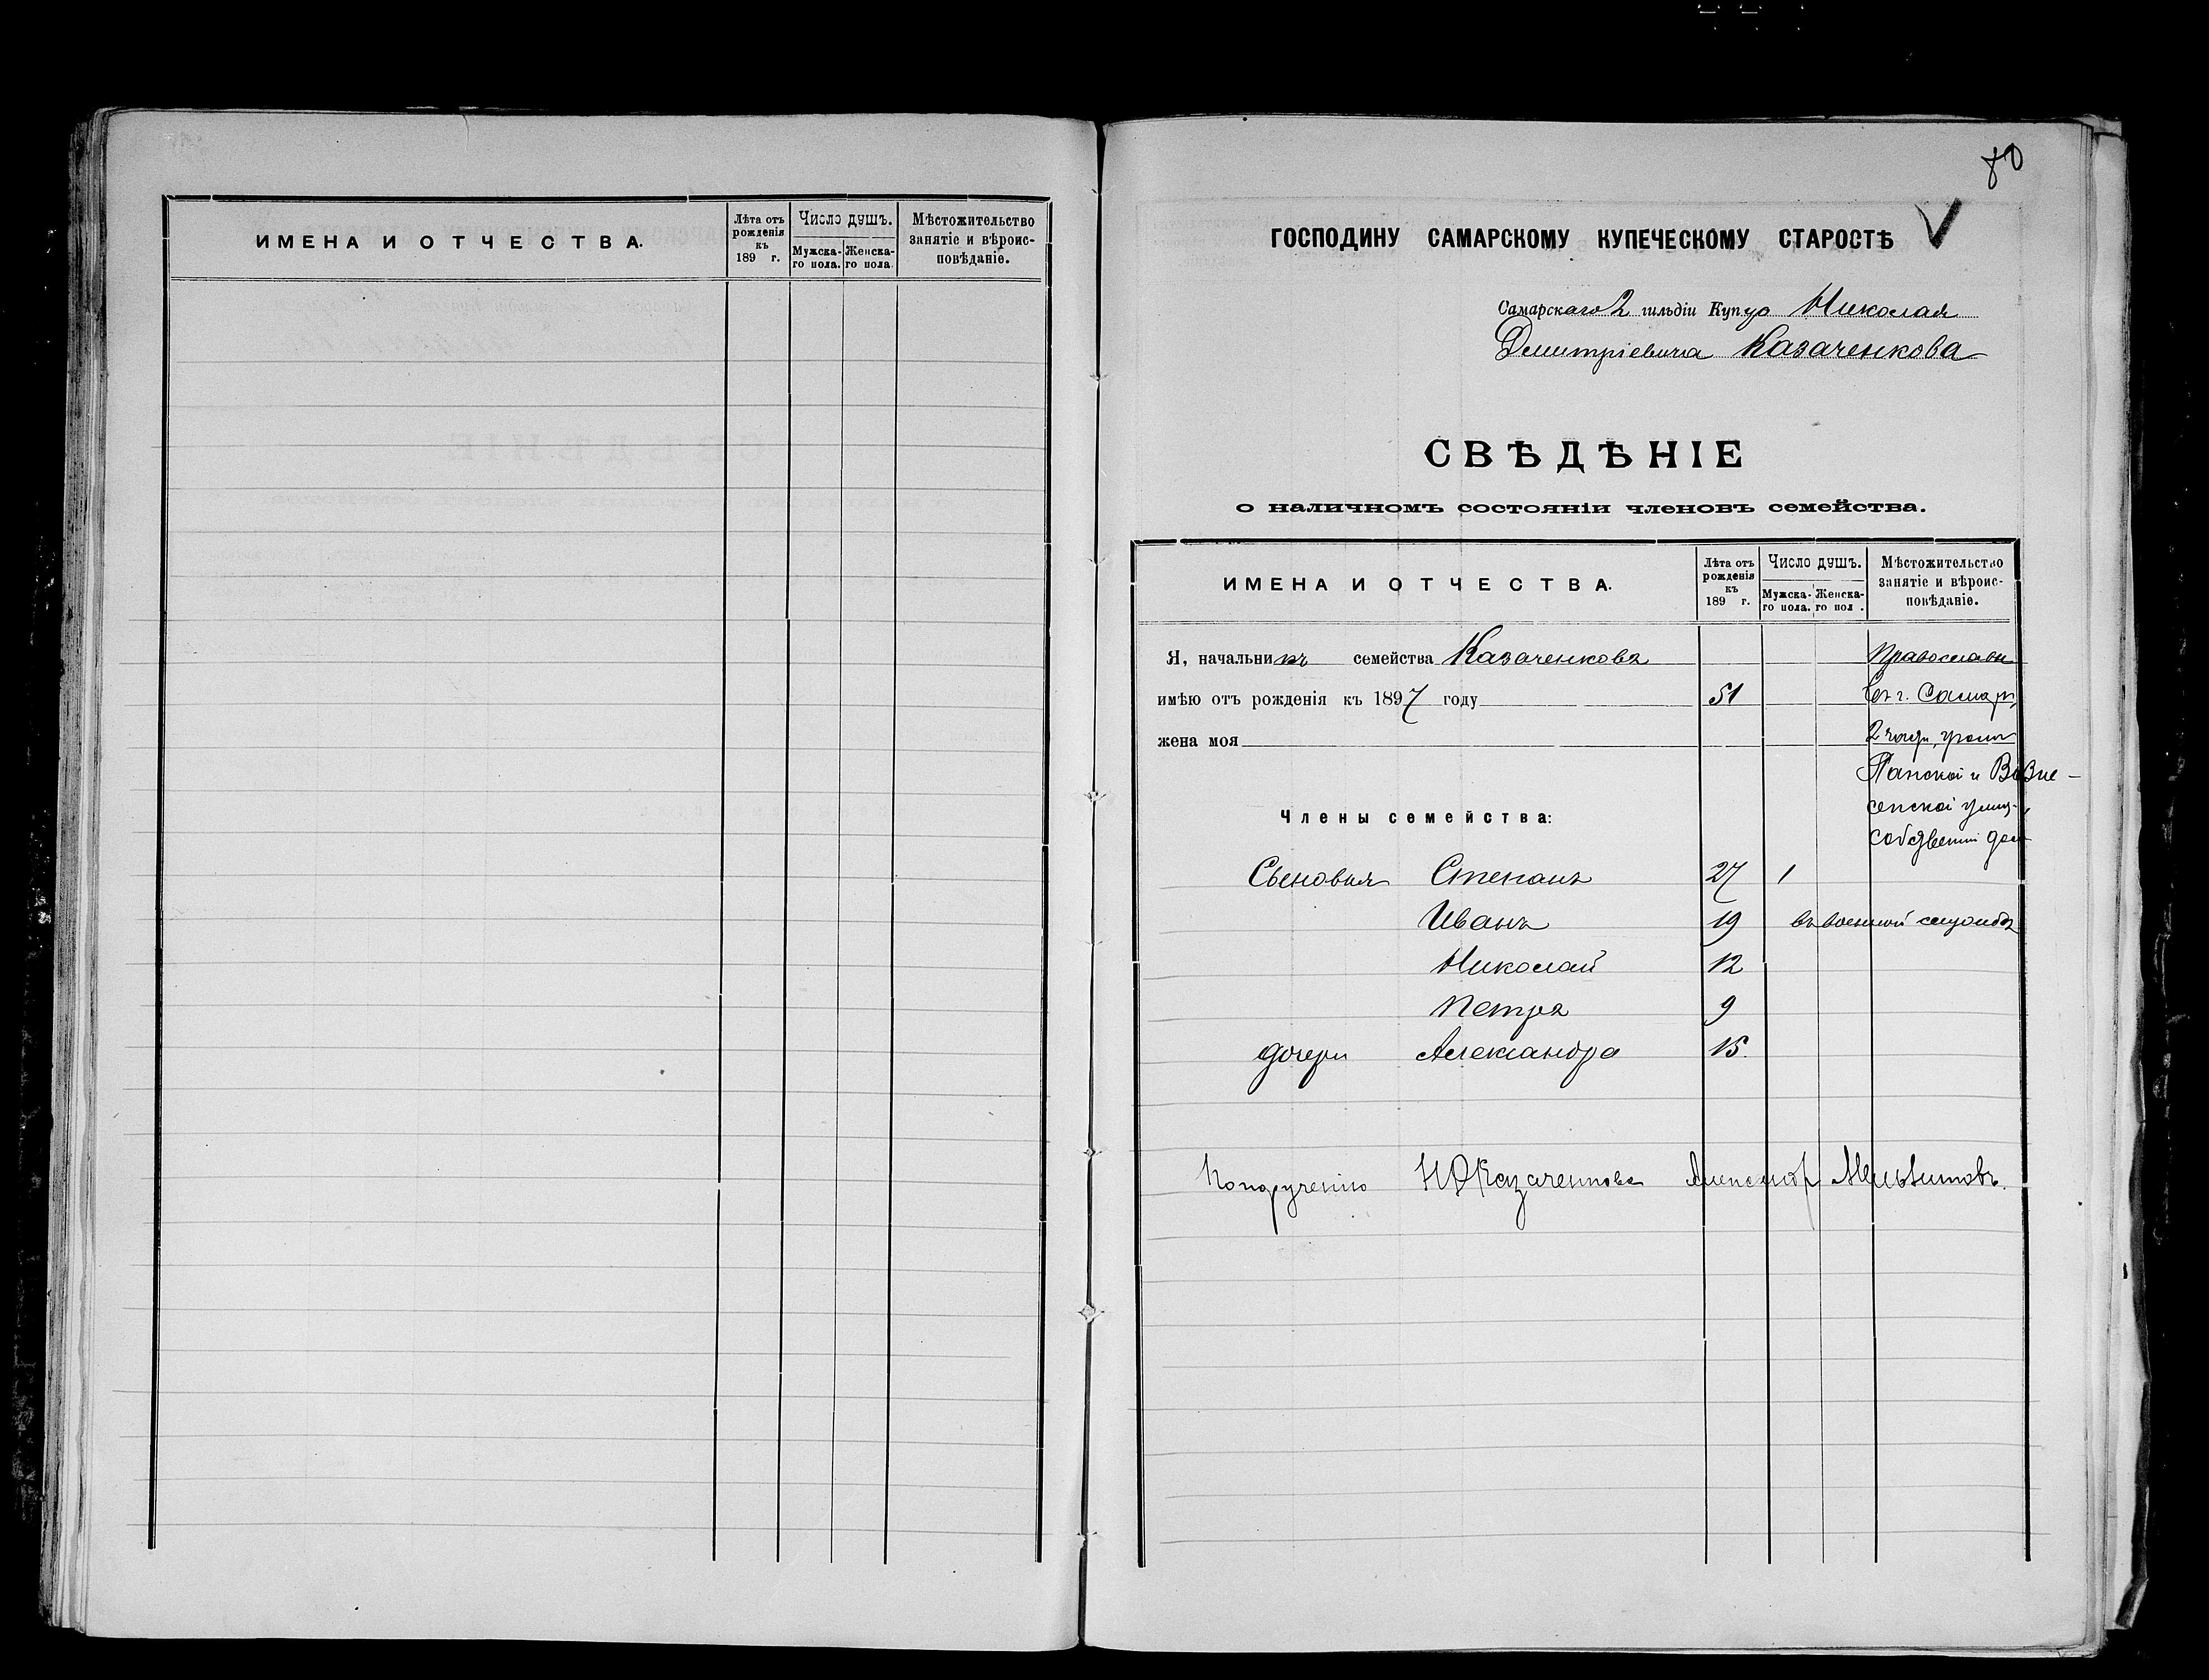 ИМЕНА И ОТЧЕСТВА.
Лѣта отъ рожденія къ 189 г.
Число душъ.
Мужска-го пола.
Женска-го пола
Мѣстожительство занятіе и вѣроис-повѣданіе.
80
ГОСПОДИНУ САМАРСКОМУ КУПЕЧЕСКОМУ СТАРОСТѢ
Самарскаго 2 гильдіи Купца Николая
Дмитріевича Казаченкова
СВѢДѢНІЕ
о наличномъ состояніи членовъ семейства.
ИМЕНА И ОТЧЕСТВА.
Лѣта отъ рожденія къ 189 г.
Число душъ.
Мужска-го пола.
Женска-го пол .
Мѣстожительство занятіе и вѣроис-повѣданіе.
Я, начальникъ семейства Казаченковъ Православн
имѣю отъ рожденія къ 1897 году 51 въ г. Самар,
жена моя 2 части,
Панской и Возне-
Члены семейства: сенской улиц,
собствен дом
Сыновья Степанъ 27 1
Иванъ 19 въ военной службѣ
Николай 12
Петръ 9
дочери Александра 15.
По порученію Н Д Казаченкова Александр